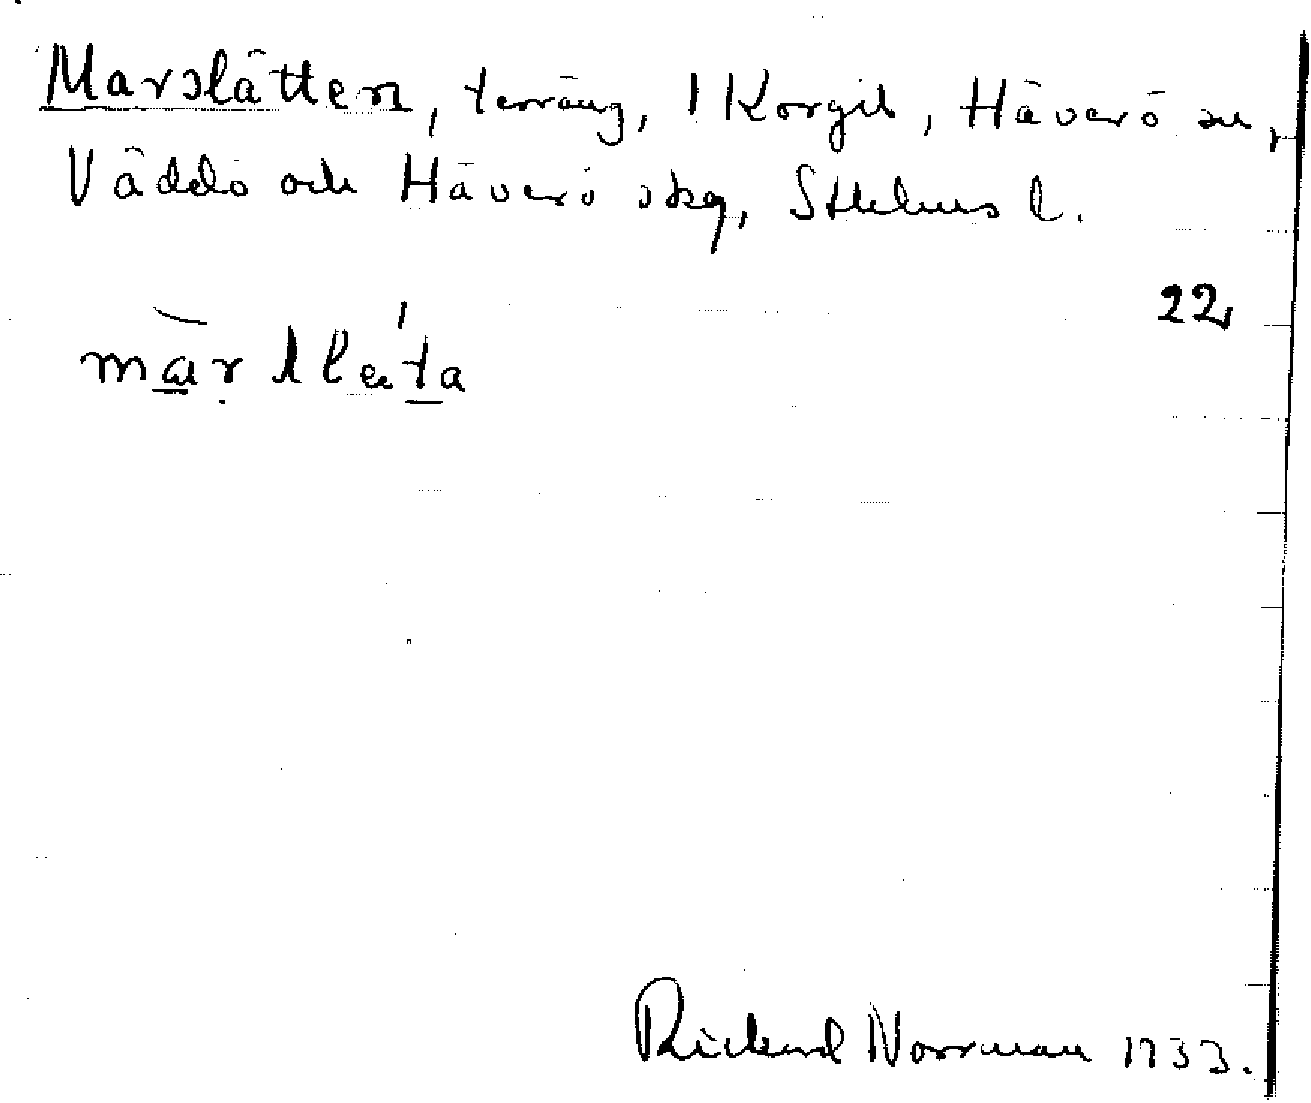 Marslätten, terräng, 1 Korgil, Häverö sn,
Väddö och Häverö skg, Sthlms l.
22
Rickard Norrman 1933.